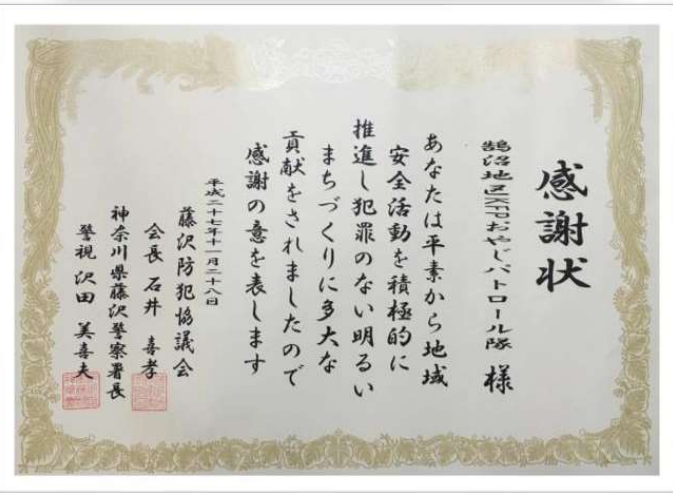 感謝状
鵠沼地区KEPおやじパトロール隊 様
あなたは平素から地域
安全活動を積極的に
推進し犯罪のない明るい
まちづくりに多大な
貢献をされましたので
感謝の意を表します
平成二十七年十一月二十八日
藤沢防犯協議会
会長 石井 喜孝
神奈川県藤沢警察署長
警視 沢田 美喜夫